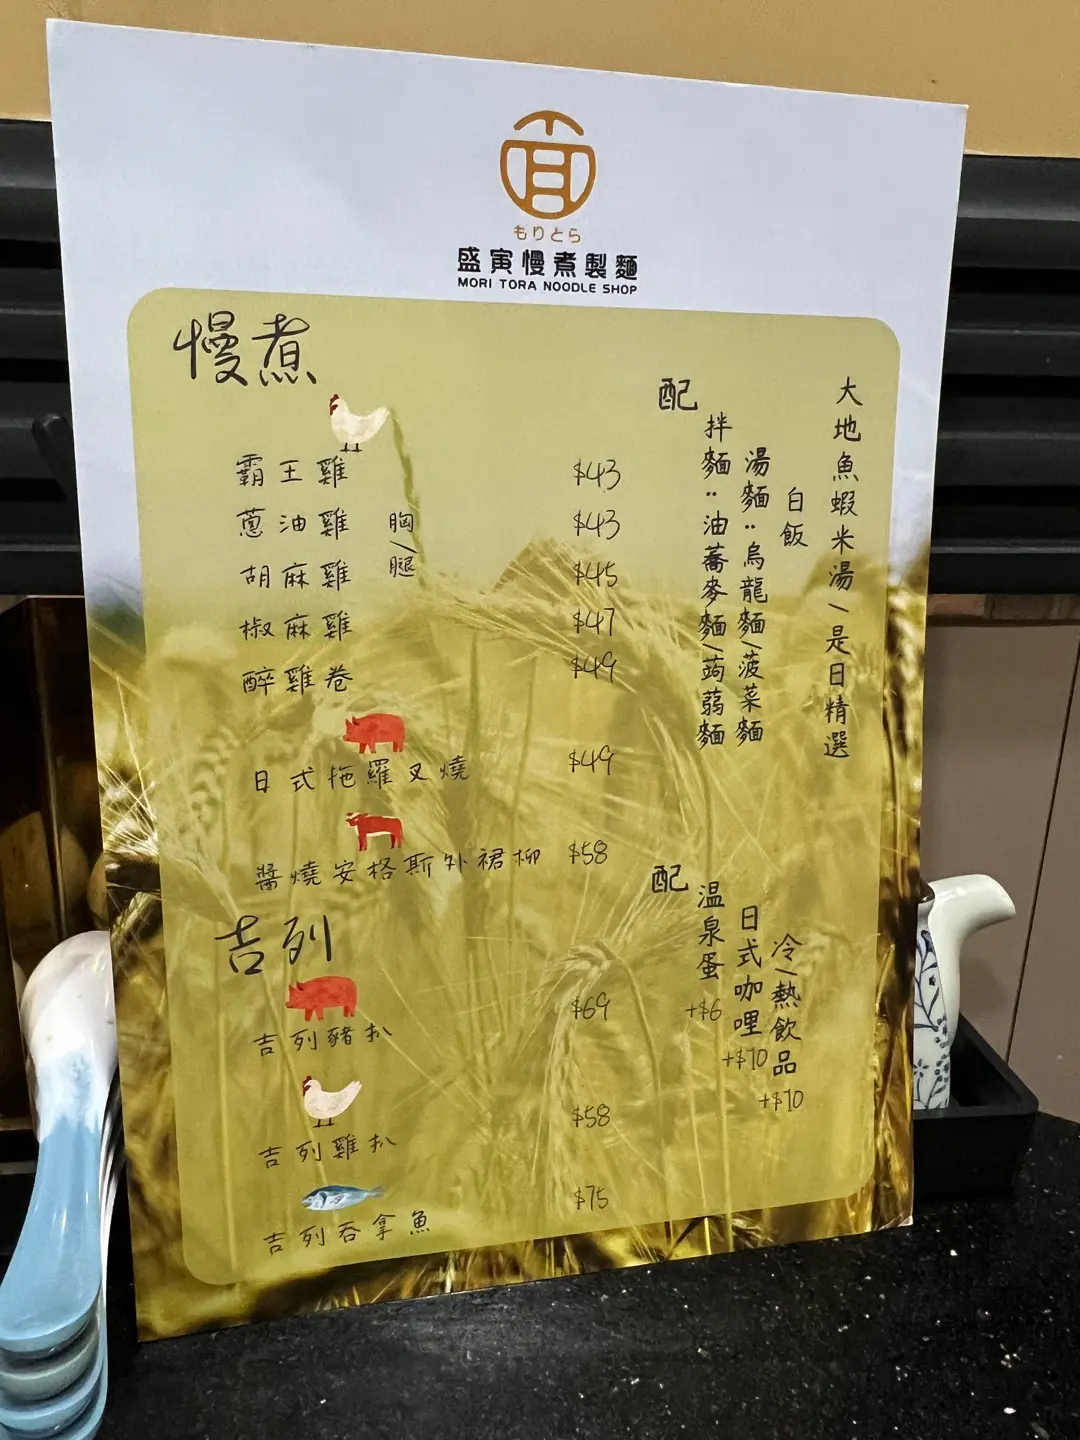 もりとら
盛寅慢煮製麵
MORI TORA NOODLE SHOP
慢煮
霸王雞 $43
蔥油雞 $43
胡麻雞 $45
椒麻雞 $47
醉雞卷 $49
胸/腿
日式拖羅叉燒 $49
醬燒安格斯外裙柳 $58
配
大地魚蝦米湯/是日精選
白飯
湯麵:烏龍麵/菠菜麵
拌麵:油蕎麥麵/蒟蒻麵
吉列
吉列豬扒 $69
吉列雞扒 $58
吉列吞拿魚 $75
配
溫泉蛋 +$6
日式咖哩 +$10
冷/熱飲品 +$10